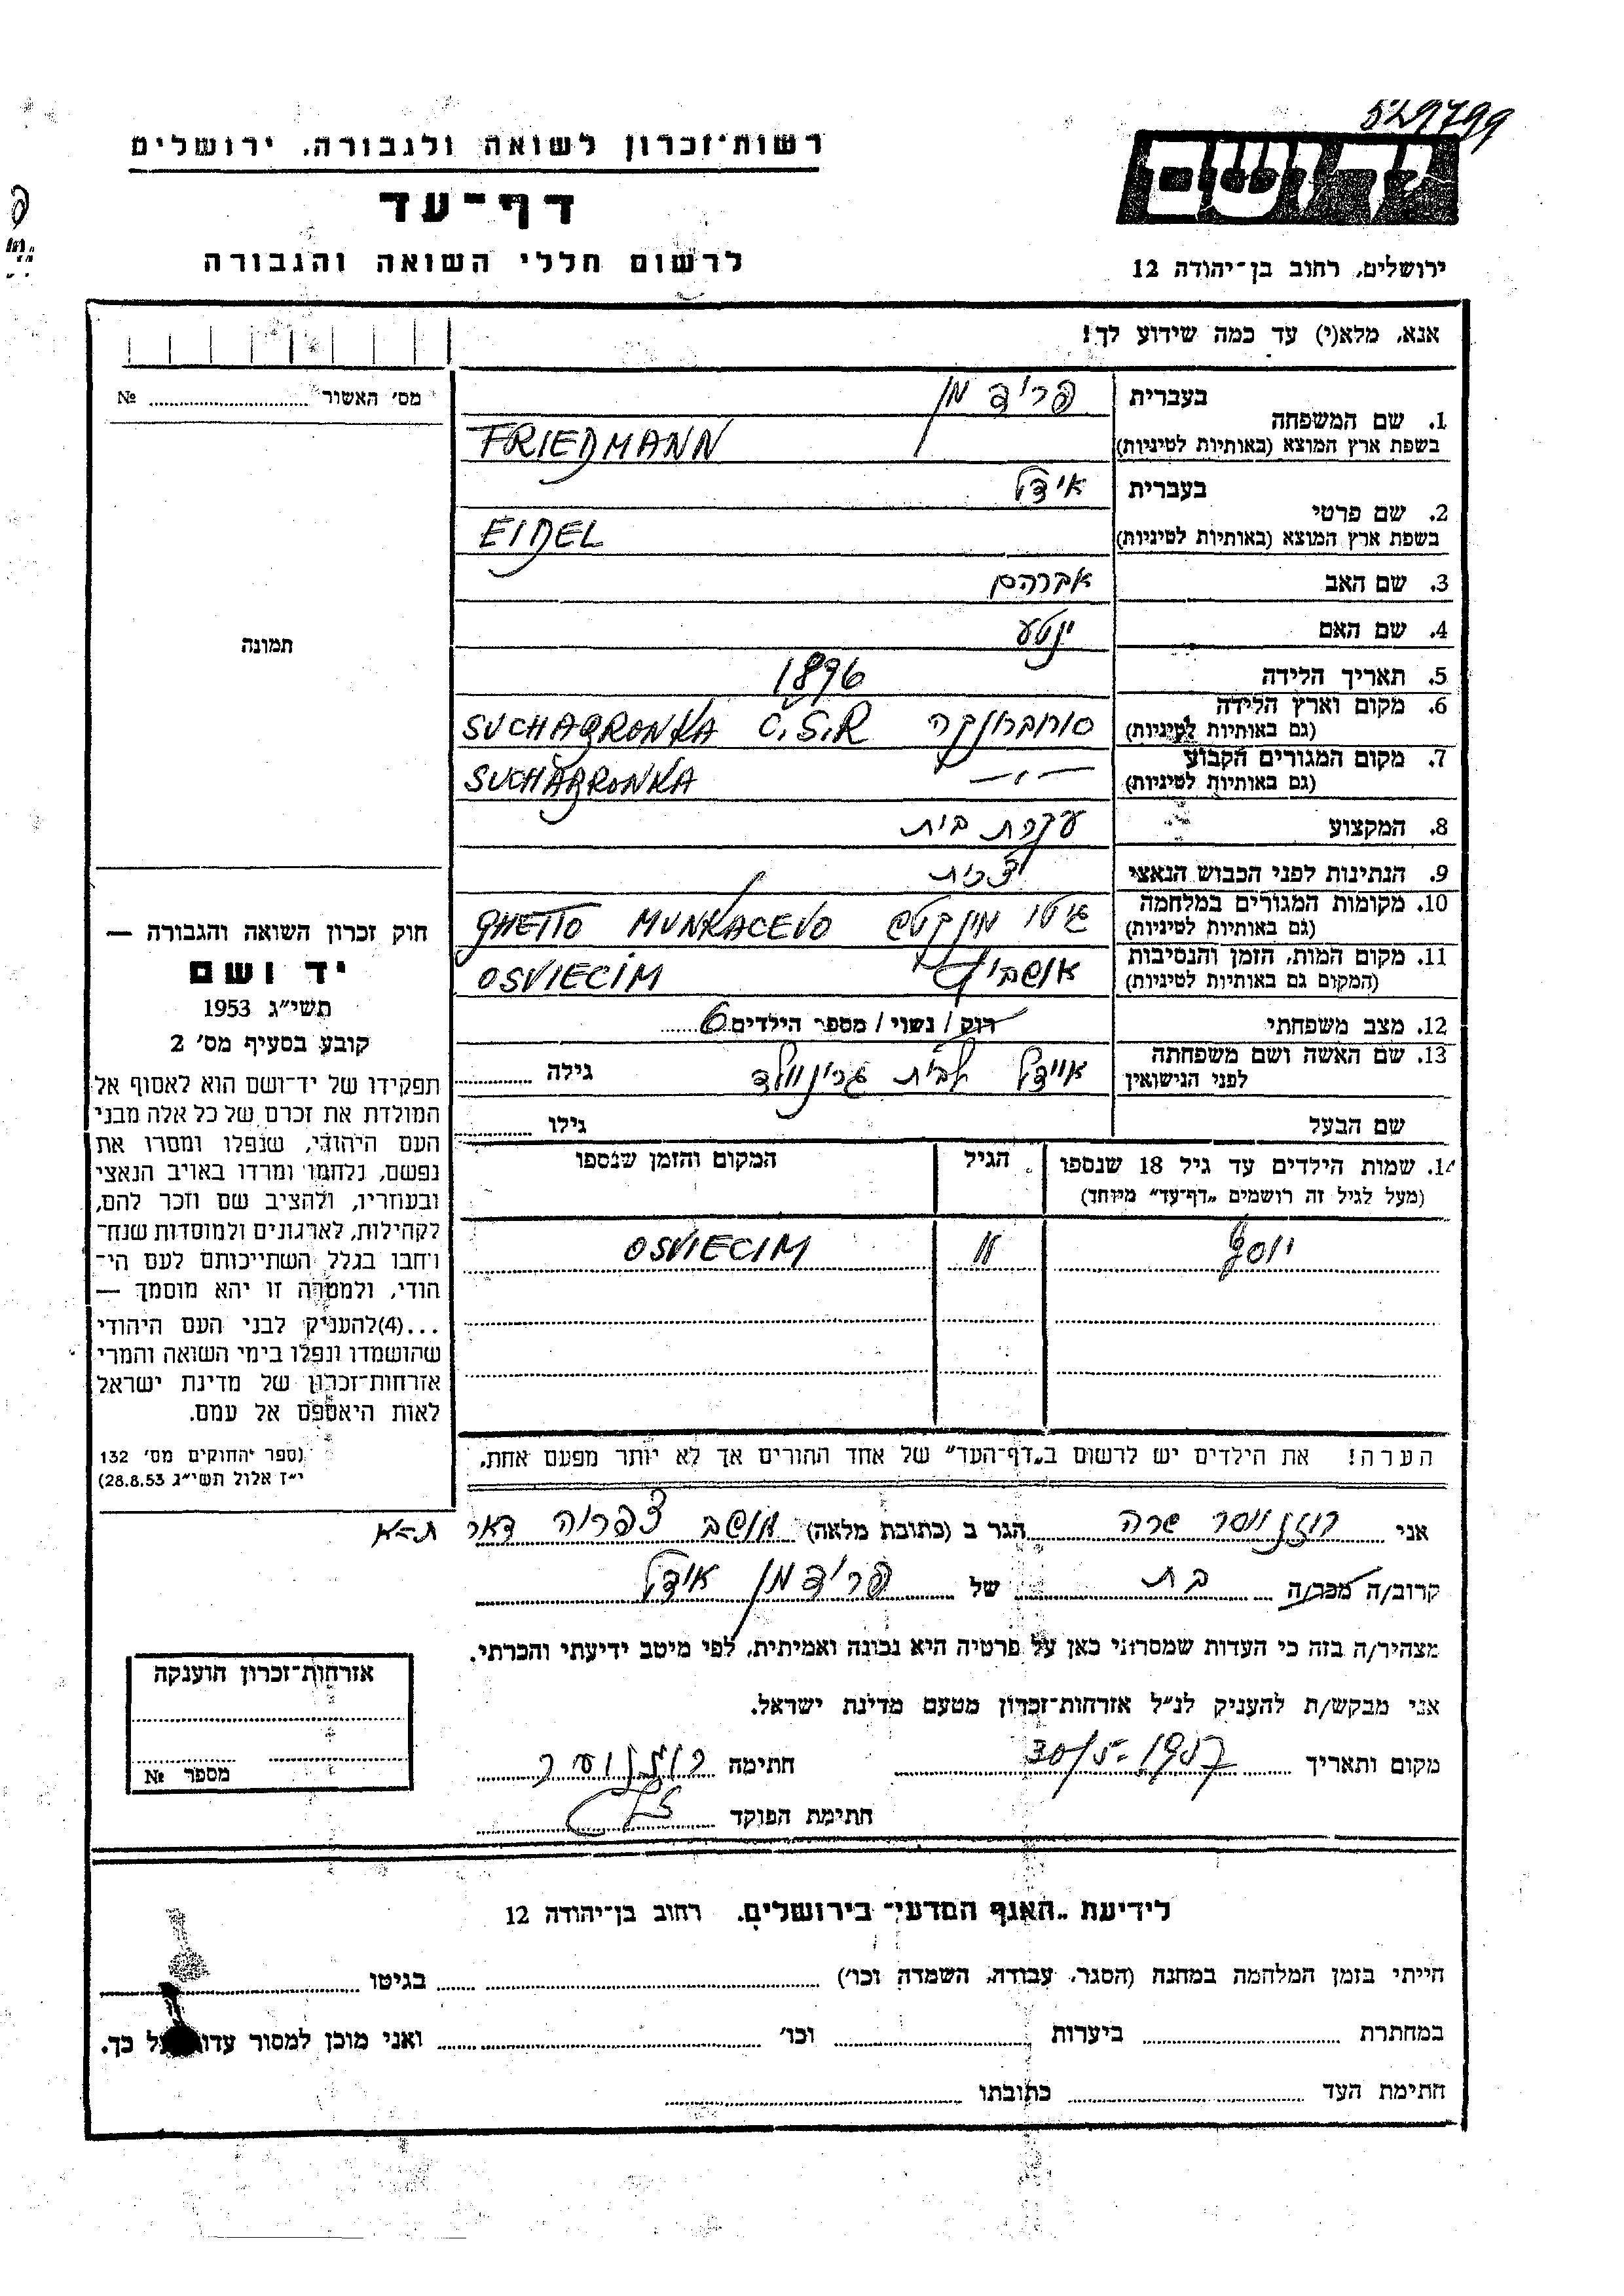 529799
רשות־זכרון לשואה ולגבורה, ירושלים
דף־עד
לרשום חללי השואה והגבורה
יד ושם
ירושלים, רחוב בן־יהודה 12
אנא, מלא(י) עד כמה שידוע לך!
מס׳ האשור № 
תמונה
בעברית פרידמן
1. שם המשפחה
בשפת ארץ המוצא (באותיות לטיניות) FRIEDMANN
בעברית אידל
2. שם פרטי
בשפת ארץ המוצא (באותיות לטיניות) EIDEL
3. שם האב אברהם
4. שם האם ינטע
5. תאריך הלידה 1896
6. מקום וארץ הלידה
(גם באותיות לטיניות) סוחברונקה SUCHABRONKA C.S.R
7. מקום המגורים הקבוע
(גם באותיות לטיניות) —״— SUCHABRONKA
8. המקצוע עקרת בית
9. הנתינות לפני הכבוש הנאצי צכית
10. מקומות המגורים במלחמה
(גם באותיות לטיניות) גיטו מונקטש GHETTO MUNKACEVO
11. מקום המות, הזמן והנסיבות
(המקום גם באותיות לטיניות) אושביץ OSVIECIM
12. מצב משפחתי רוק / נשוי / מספר הילדים 6
13. שם האשה ושם משפחתה
לפני הנישואין אידל לבית גרינוולד גילה
שם הבעל גילו
14. שמות הילדים עד גיל 18 שנספו הגיל המקום והזמן שנספו
(מעל לגיל זה רושמים „דף־עד״ מיוחד)
יוסף 11 OSVIECIM
הערה! את הילדים יש לרשום ב„דף־העד״ של אחד ההורים אך לא יותר מפעם אחת.
חוק זכרון השואה והגבורה —
יד ושם
תשי״ג 1953
קובע בסעיף מס׳ 2
תפקידו של יד־ושם הוא לאסוף אל
המולדת את זכרם של כל אלה מבני
העם היהודי, שנפלו ומסרו את
נפשם, נלחמו ומרדו באויב הנאצי
ובעוזריו, ולהציב שם וזכר להם,
לקהילות, לארגונים ולמוסדות שנח־
רבו בגלל השתייכותם לעם הי־
הודי, ולמטרה זו יהא מוסמך —
...(4) להעניק לבני העם היהודי
שהושמדו ונפלו בימי השואה והמרי
אזרחות־זכרון של מדינת ישראל
לאות היאספם אל עמם.
(ספר החוקים מס׳ 132
י״ז אלול תשי״ג 28.8.53)
אני רוזנווסר שרה הגר ב (כתובת מלאה) מושב צפריה דאר ת-א
קרוב/ה מכר/ה בת של פרידמן אידל
מצהיר/ה בזה כי העדות שמסרתי כאן על פרטיה היא נכונה ואמיתית, לפי מיטב ידיעתי והכרתי.
אני מבקש/ת להעניק לנ״ל אזרחות־זכרון מטעם מדינת ישראל.
מקום ותאריך 30/5.1957 חתימה
חתימת הפוקד
אזרחות־זכרון הוענקה
מספר №
לידיעת „האגף המדעי״ בירושלים, רחוב בן־יהודה 12
הייתי בזמן המלחמה במחנה (הסגר, עבודה, השמדה וכו׳) בגיטו
במחתרת ביערות וכו׳ ואני מוכן למסור עדות על כך.
חתימת העד כתובתו